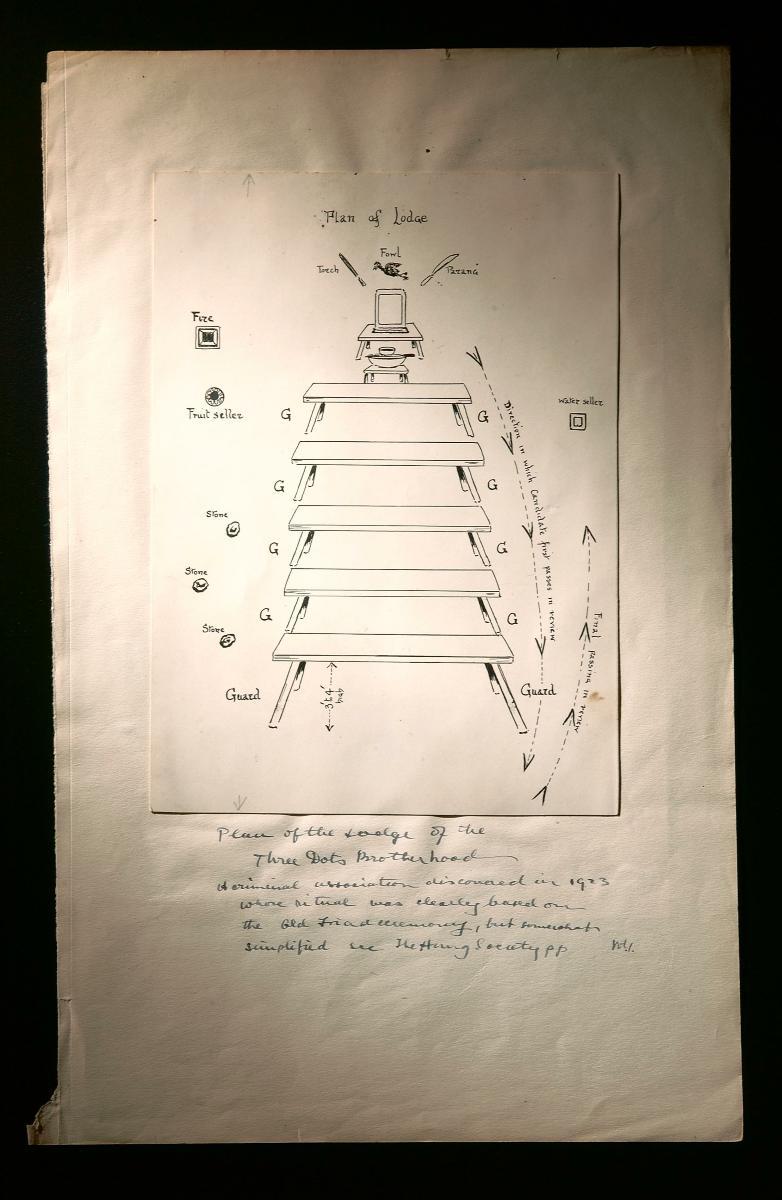 Plan of Lodge
Fowl
Torch
Parang
Fire
Fruit seller
Water seller
G
G
G
G
Stone
G
G
Stone
G
G
Stone
Guard
Guard
3'to4'
high
Direction in which Candidate first passes in review
Final passing in review
Plan of the Lodge of the
Three Dots Brotherhood
A criminal association discovered in 1923
whose ritual was clearly based on
the Old Triad ceremony, but somewhat
simplified see The Hung Society pp Vol. 1.